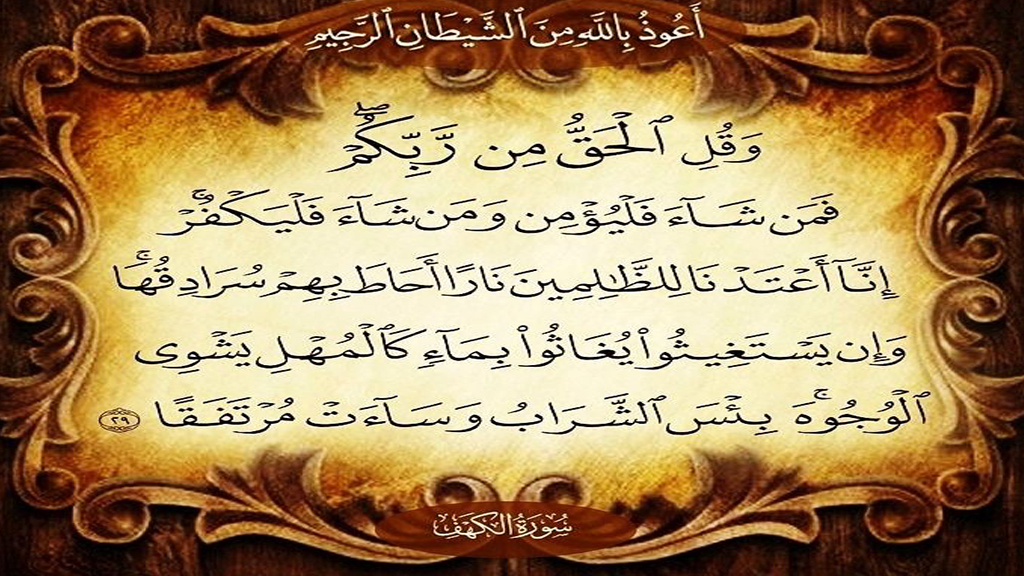 أَعُوذُ بِاللَّهِ مِنَ ٱلشَّيْطَانِ ٱلرَّجِيمِ
وَقُلِ ٱلْحَقُّ مِن رَّبِّكُمْ ۖ
فَمَن شَآءَ فَلْيُؤْمِن وَمَن شَآءَ فَلْيَكْفُرْ ۚ
إِنَّآ أَعْتَدْنَا لِلظَّٰلِمِينَ نَارًا أَحَاطَ بِهِمْ سُرَادِقُهَا ۚ
وَإِن يَسْتَغِيثُوا۟ يُغَاثُوا۟ بِمَآءٍ كَٱلْمُهْلِ يَشْوِى
ٱلْوُجُوهَ ۚ بِئْسَ ٱلشَّرَابُ وَسَآءَتْ مُرْتَفَقًا ٢٩
سُورَةُ الكَهْفِ